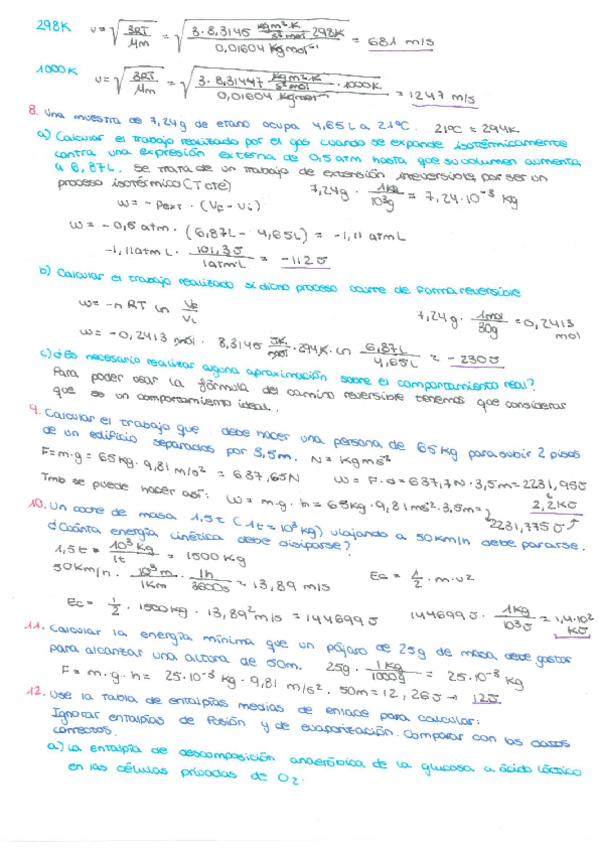 298K v = √(3RT/Mm) = √(3·8,3145 kg m² K/s² mol 298K / 0,01604 kg mol⁻¹) = 681 m/s
1000K v = √(3RT/Mm) = √(3·8,31447 kg m² K/s² mol · 1000K / 0,01604 kg mol⁻¹) = 1247 m/s
8. Una muestra de 7,24g de etano ocupa 4,65L a 21ºC. 21ºC = 294K
a) Calcular el trabajo realizado por el gas cuando se expande isotérmicamente
contra una expresión externa de 0,5 atm hasta que su volumen aumenta
a 6,87L. Se trata de un trabajo de extensión irreversible, por ser un
proceso isotérmico (T cte) 7,24g · 1kg/10³g = 7,24·10⁻³ kg
w = - Pext · (Vf - Vi)
w = - 0,5 atm · (6,87L - 4,65L) = -1,11 atm L
-1,11 atm L · 101,3J/1atm·L = -112J
b) Calcular el trabajo realizado si dicho proceso ocurre de forma reversible
w = -n RT ln Vf/Vi 7,24g · 1mol/30g = 0,2413 mol
w = -0,2413 mol · 8,3145 JK/mol · 294K · ln 6,87L/4,65L = -230J
c) ¿Es necesario realizar alguna aproximación sobre el comportamiento real?
Para poder usar la fórmula del camino reversible tenemos que considerar
que es un comportamiento ideal.
9. Calcular el trabajo que debe hacer una persona de 65 kg para subir 2 pisos
de un edificio separados por 3,5m. N = kg m s⁻²
F = m·g = 65kg · 9,81 m/s² = 637,65N w = F·d = 637,7N · 3,5m = 2231,95J
Tmb se puede hacer así: w = m·g·h = 65kg · 9,81 ms⁻² · 3,5m = 2,2KJ
2231,775J
10. Un coche de masa 1,5t (1t = 10³ kg) viajando a 50km/h debe pararse.
¿Cuánta energía cinética debe disiparse?
1,5t · 10³ kg/1t = 1500 kg
50km/h · 10³ m/1km · 1h/3600s = 13,89 m/s Ec = 1/2 · m · v²
Ec = 1/2 · 1500 kg · 13,89² m/s = 144699J 144699J · 1kg/10³J = 1,4·10² KJ
11. Calcular la energía mínima que un pájaro de 25g de masa debe gastar
para alcanzar una altura de 50m. 25g · 1kg/1000g = 25·10⁻³ kg
F = m·g·h = 25·10⁻³ kg · 9,81 m/s² · 50m = 12,26J → 12J
12. Use la tabla de entalpías medias de enlace para calcular:
Ignorar entalpías de fusión y de evaporización. Comparar con los datos
correctos.
a) La entalpía de descomposición anaeróbica de la glucosa a ácido láctico
en las células privadas de O₂.